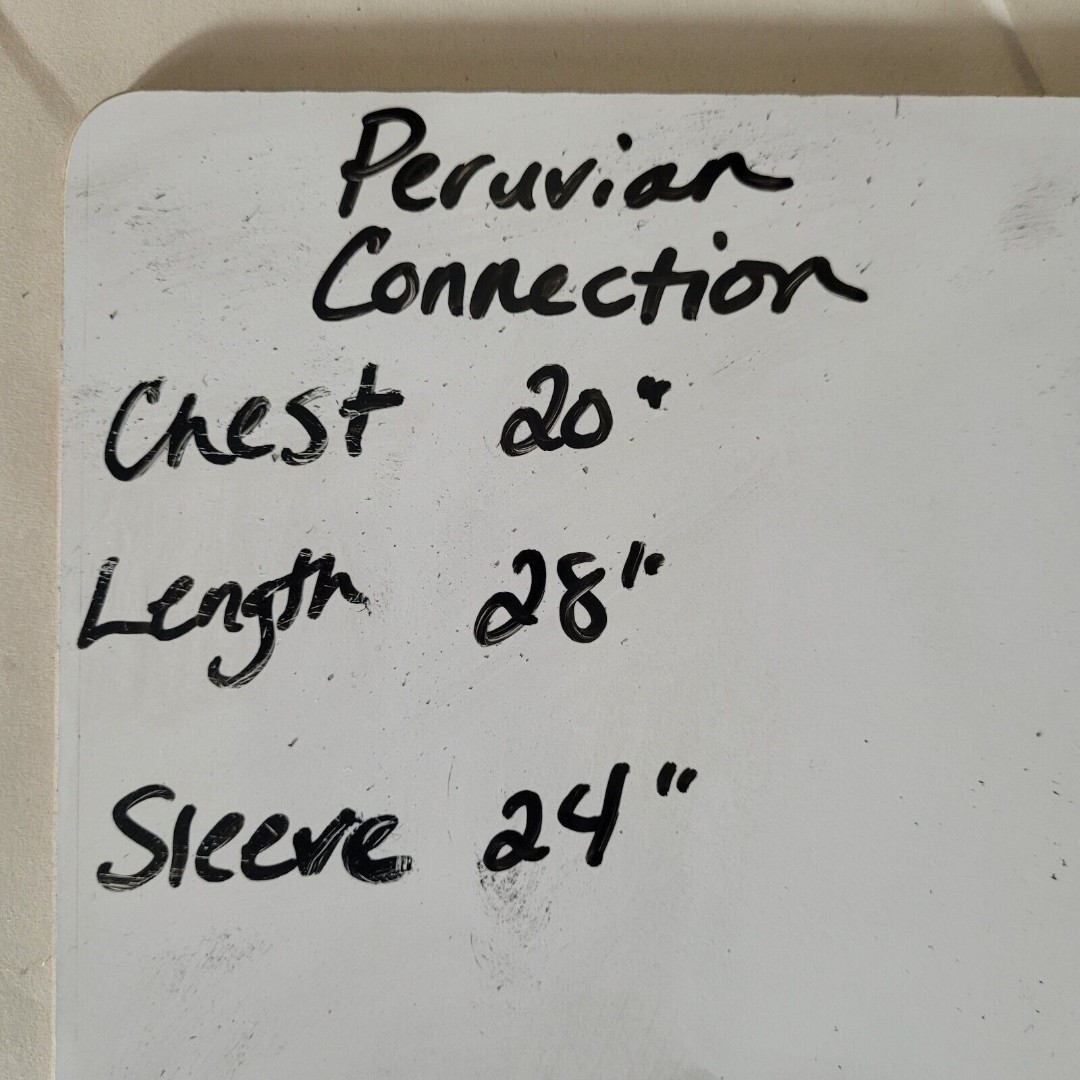 Peruvian
Connection
Chest 20"
Length 28"
Sleeve 24"